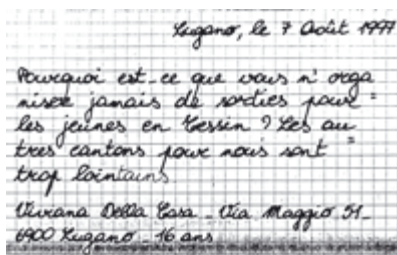 Lugano, le 7 Août 1997
Pourquoi est-ce que vous n'orga
nisez jamais de sorties pour =
les jeunes en Tessin ? Les au =
tres cantons pour nous sont
trop lointains
Viviana Della Casa - Via Maggio 51 -
6900 Lugano - 16 ans